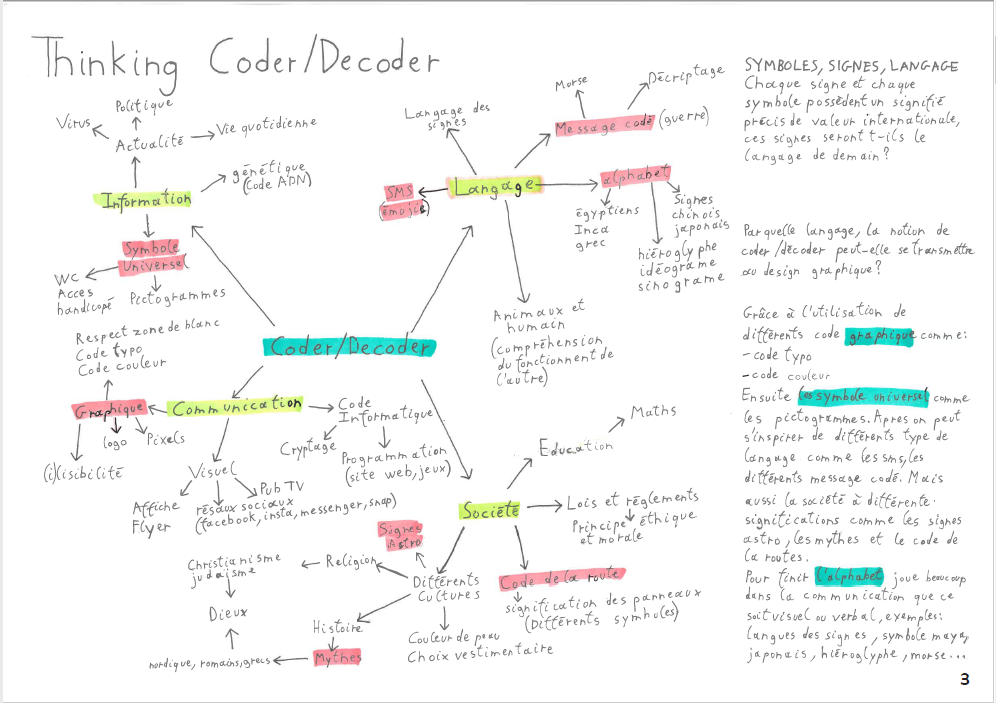 Thinking Coder/Decoder
Politique
Virus
Actualité
Vie quotidienne
génétique
(Code ADN)
Information
Symbole
Universel
WC
Acces
handicapé
Pictogrammes
Langage des
signes
Morse
Décriptage
Message codé (guerre)
SMS
(émojis)
Langage
alphabet
égyptiens
Inca
grec
Signes
chinois
japonais
hiéroglyphe
idéograme
sinograme
Animaux et
humain
(compréhension
du fonctionnent de
l'autre)
Coder/Decoder
Respect zone de blanc
Code typo
Code couleur
Graphique
Communication
logo
Pixels
(i)lisibilité
Code
Informatique
Cryptage
Programmation
(site web, jeux)
Visuel
Affiche
Flyer
réseaux sociaux
(facebook, insta, messenger, snap)
Pub TV
Société
Education
Maths
Lois et règlements
Principe éthique
et morale
Signes
Astro
Religion
Christianisme
judaïsme
Dieux
Différents
Cultures
Histoire
Mythes
nordique, romains, grecs
Couleur de peau
Choix vestimentaire
Code de la route
signification des panneaux
(Différents symboles)
SYMBOLES, SIGNES, LANGAGE
Chaque signe et chaque
symbole possèdent un signifié
précis de valeur internationale,
ces signes seront t-ils le
langage de demain?
Par quelle langage, la notion de
coder/décoder peut-elle se transmettre
au design graphique?
Grâce à l'utilisation de
différents code graphique comme:
-code typo
-code couleur
Ensuite les symbole universel comme
les pictogrammes. Apres on peut
s'inspirer de différents type de
langage comme les sms, les
différents message codé. Mais
aussi la société à différente
significations comme les signes
astro, les mythes et le code de
la routes.
Pour finir l'alphabet, joue beaucoup
dans la communication que ce
soit visuel ou verbal, exemples:
langues des signes, symbole maya,
japonais, hiéroglyphe, morse...
3